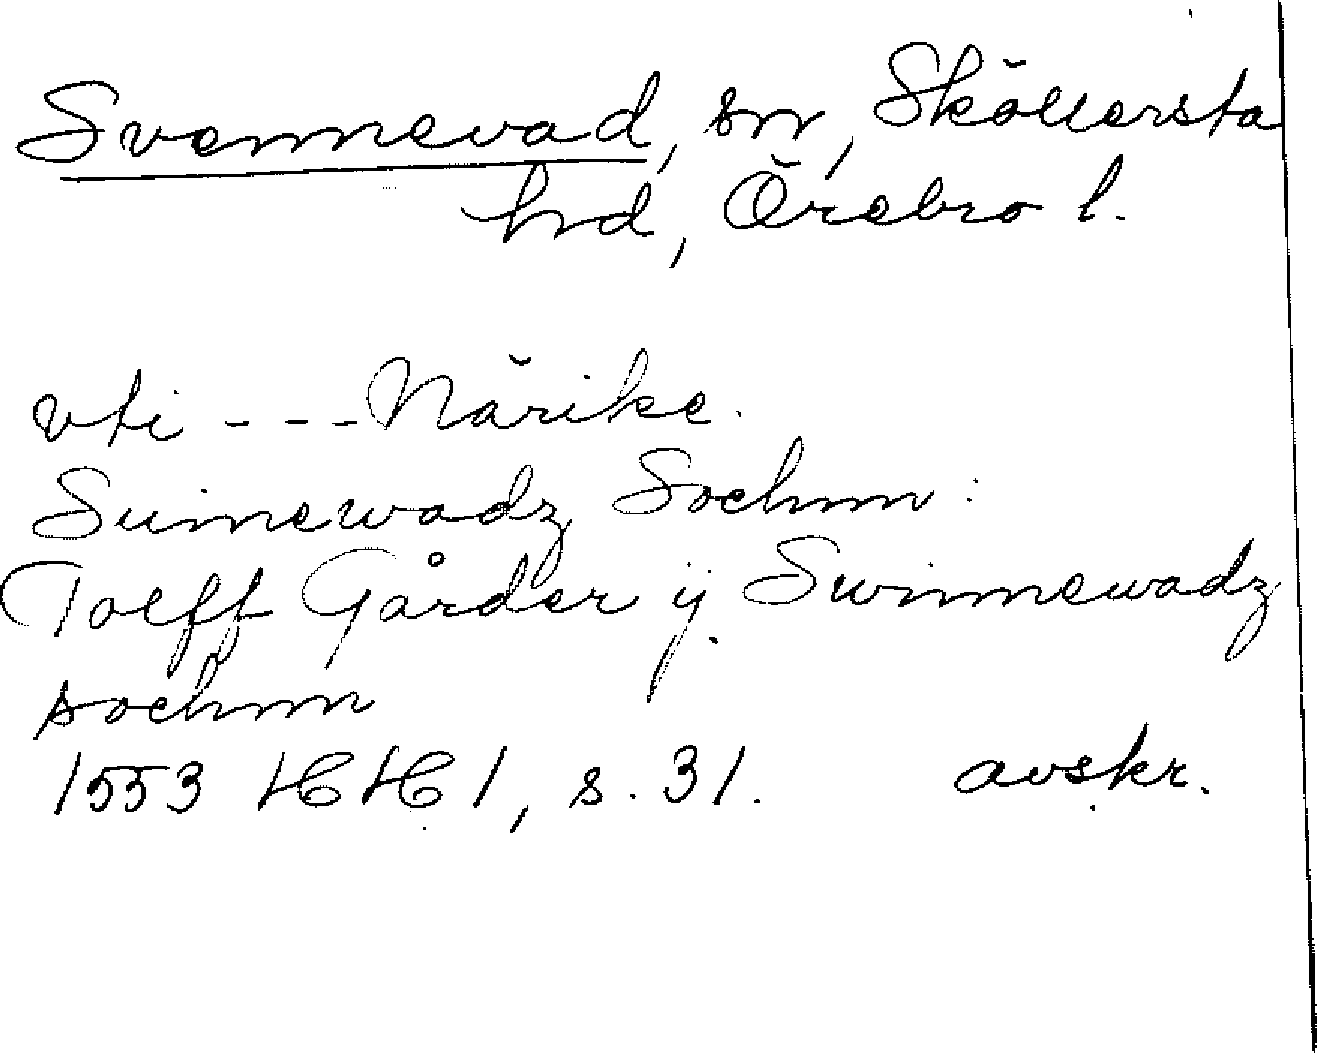 Svennevad, sn, Sköllersta
hd, Örebro l.
vti --- Närike.
Suinewadz Sochnn:
Tolff Gårder ij Swinnewadz
sochnn
1553 HH 1, s. 31. avskr.